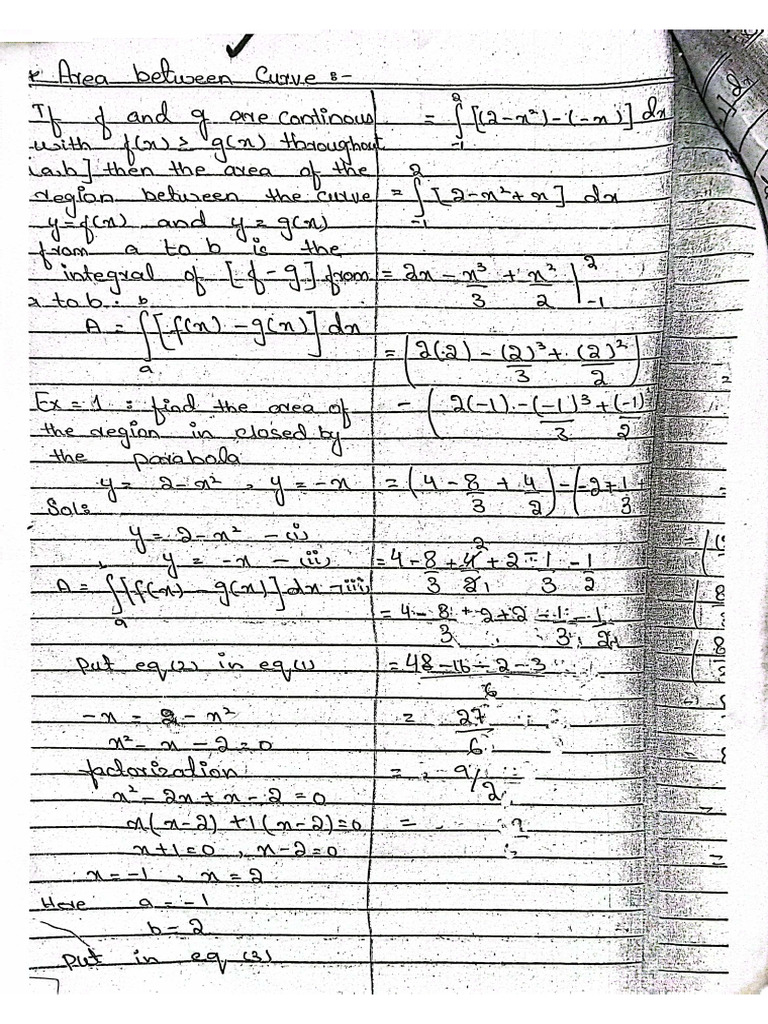 * Area between Curve :-
If f and g are continous
with f(x) ≥ g(x) throughout
[a,b] then the area of the
region between the curve
y=f(x) and y = g(x)
from a to b is the
integral of [f-g] from
a to b.
A = ∫_a^b [f(x) - g(x)] dx
Ex = 1 : find the area of
the region in closed by
the parabola
y = 2-x², y = -x
Sol:
y = 2-x² - (i)
y = -x - (ii)
A = ∫_a [f(x) - g(x)] dx - (iii)
Put eq (2) in eq (1)
-x = 2 - x²
x² - x - 2 = 0
factorization
x² - 2x + x - 2 = 0
x(x-2) + 1(x-2) = 0
x+1=0, x-2=0
x = -1, x = 2
Here a = -1
b = 2
Put in eq (3)
= ∫_-1^2 [(2-x²) - (-x)] dx
= ∫_-1^2 [2-x²+x] dx
= 2x - x³/3 + x²/2 |_-1^2
= (2(2) - (2)³/3 + (2)²/2)
- (2(-1) - (-1)³/3 + (-1)/2
= (4 - 8/3 + 4/2) - (-2 + 1/3
= 4 - 8/3 + 4/2 + 2 - 1/3 - 1/2
= 4 - 8/3 + 2 + 2 - 1/3 - 1/2
= 48 - 16 - 2 - 3 / 6
= 27/6
= 9/2